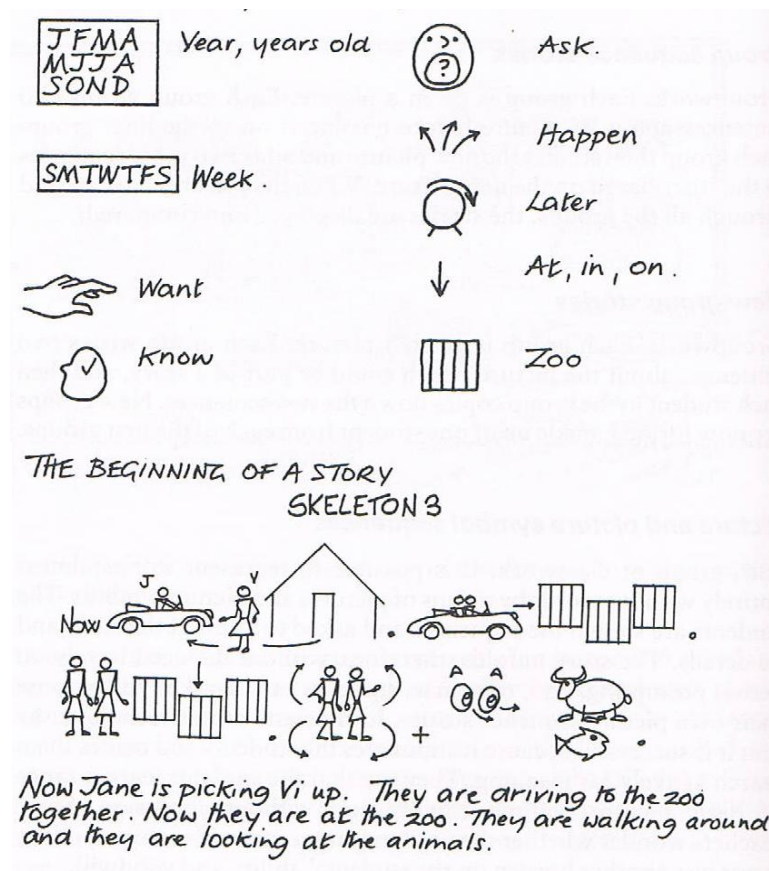 JFMA
MJJA
SOND
Year, years old
? ?
?
Ask.
Happen
SMTWTFS
Week.
Later
At, in, on.
Want
Know
Zoo
THE BEGINNING OF A STORY
SKELETON 3
J
V
Now
.
.
.
+
.
Now Jane is picking Vi up. They are arriving to the zoo
together. Now they are at the zoo. They are walking around
and they are looking at the animals.